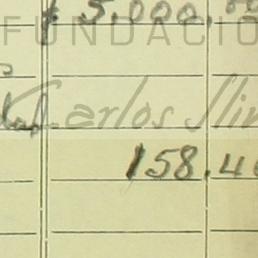 $ 5,000.00
FUNDACIO
Carlos Slim
158.40